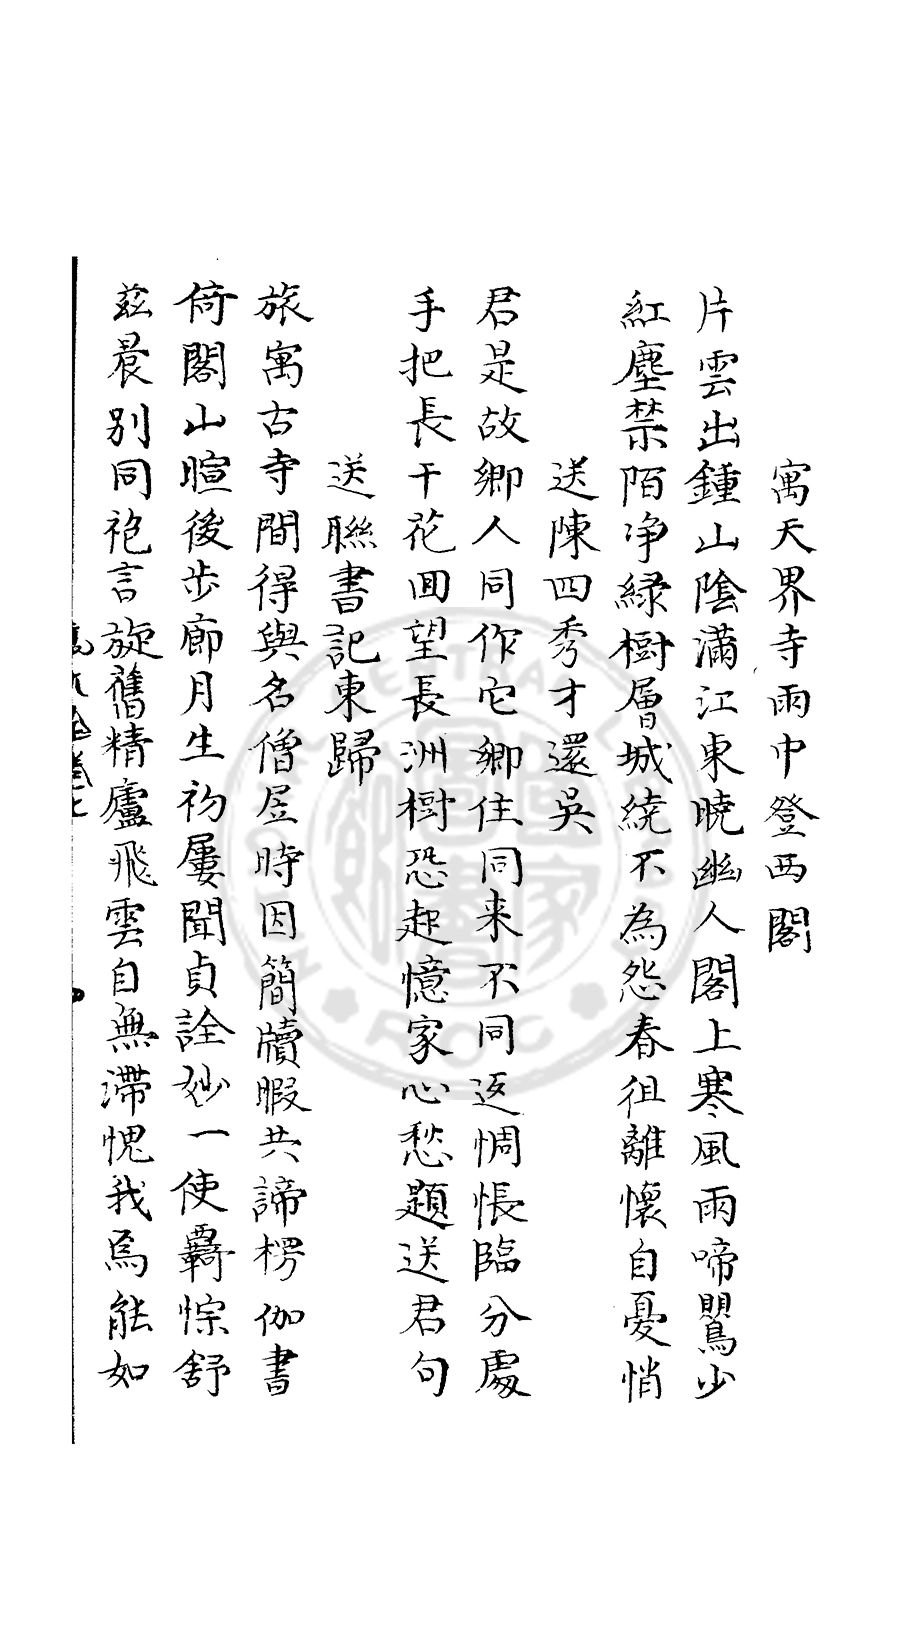 寓天界寺雨中登西閣
片雲出鍾山陰滿江東曉幽人閣上寒風雨啼鸎少
紅塵禁陌净緑樹層城繞不為怨春徂離懷自憂悄
送陳四秀才還吳
君是故鄉人同作它鄉住同来不同返惆悵臨分處
手把長干花回望長洲樹恐起憶家心愁題送君句
送聯書記東歸
旅寓古寺間得與名僧居時因簡牘暇共諦楞伽書
倚閣山暄後步廊月生初屢聞貞詮妙一使羇悰舒
兹晨別同袍言旋舊精廬飛雲自無滯愧我焉能如